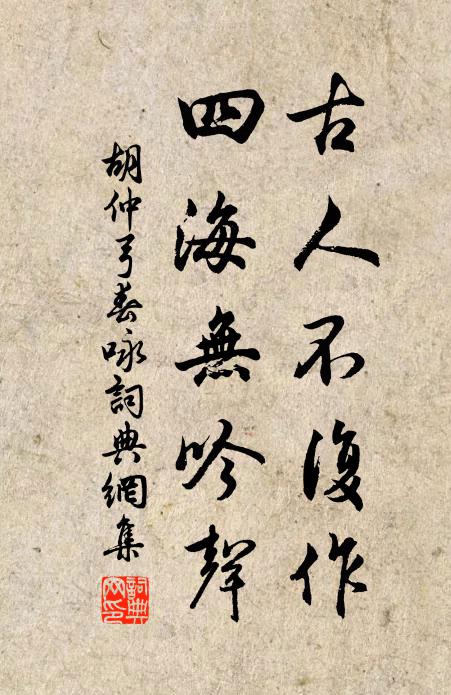 古人不復作
四海無吟聲
胡仲弓春咏詞典網集
詞典网印